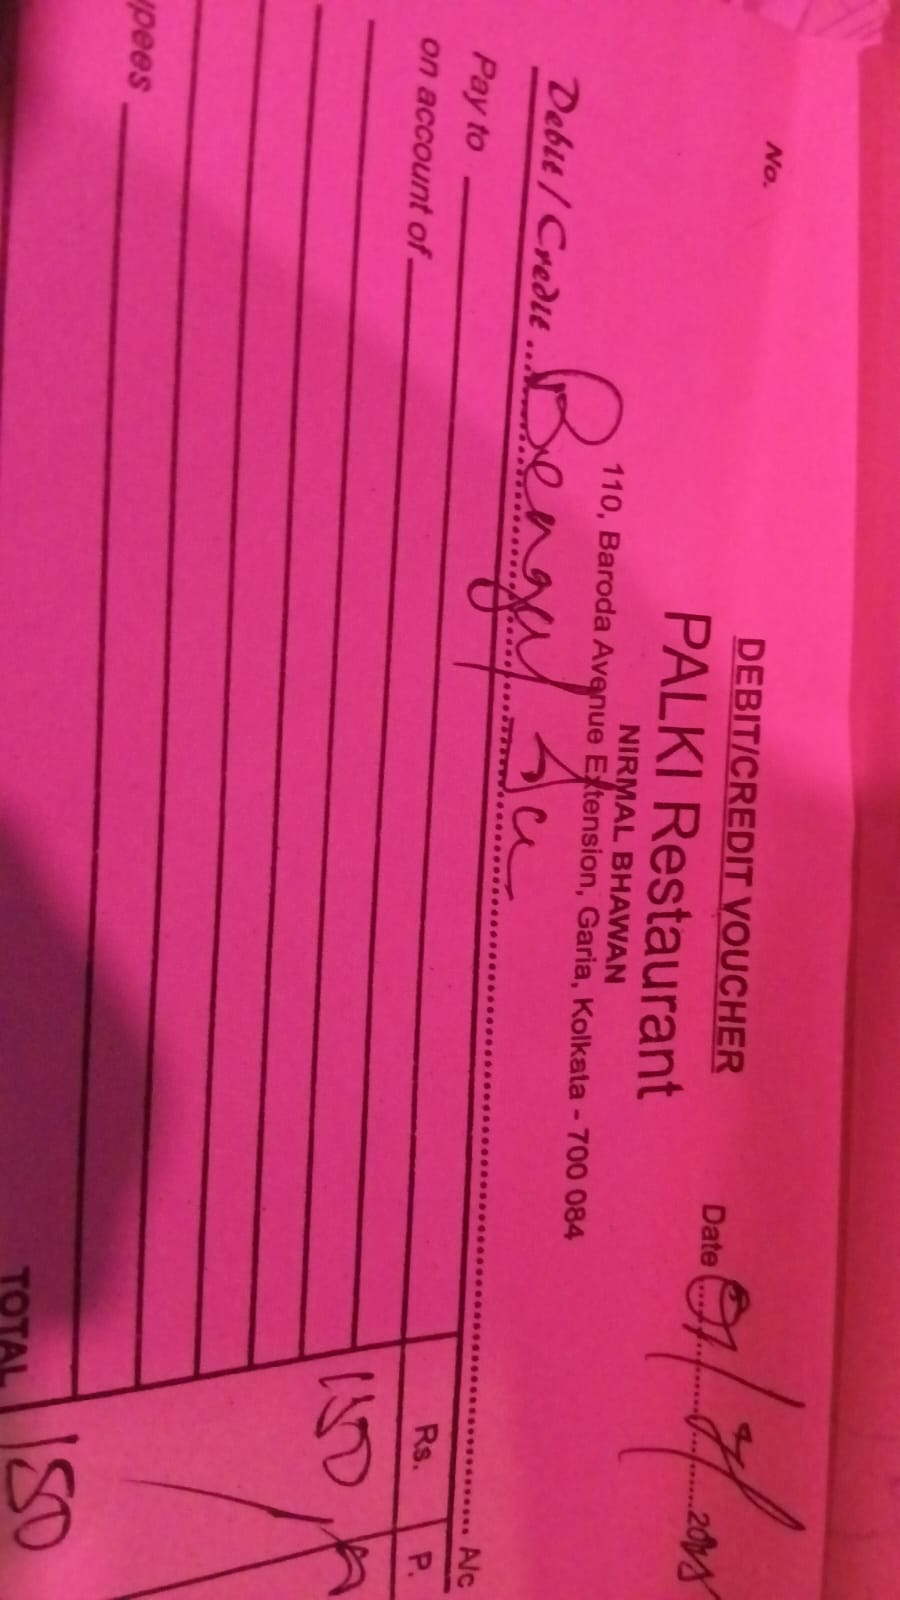 No.
DEBIT/CREDIT VOUCHER
PALKI Restaurant
NIRMAL BHAWAN
110, Baroda Avenue Extension, Garia, Kolkata - 700 084
Date 20
Debit / Credit Bengal A/c
Pay to
on account of Rs. P.
150
upees
TOTAL 150